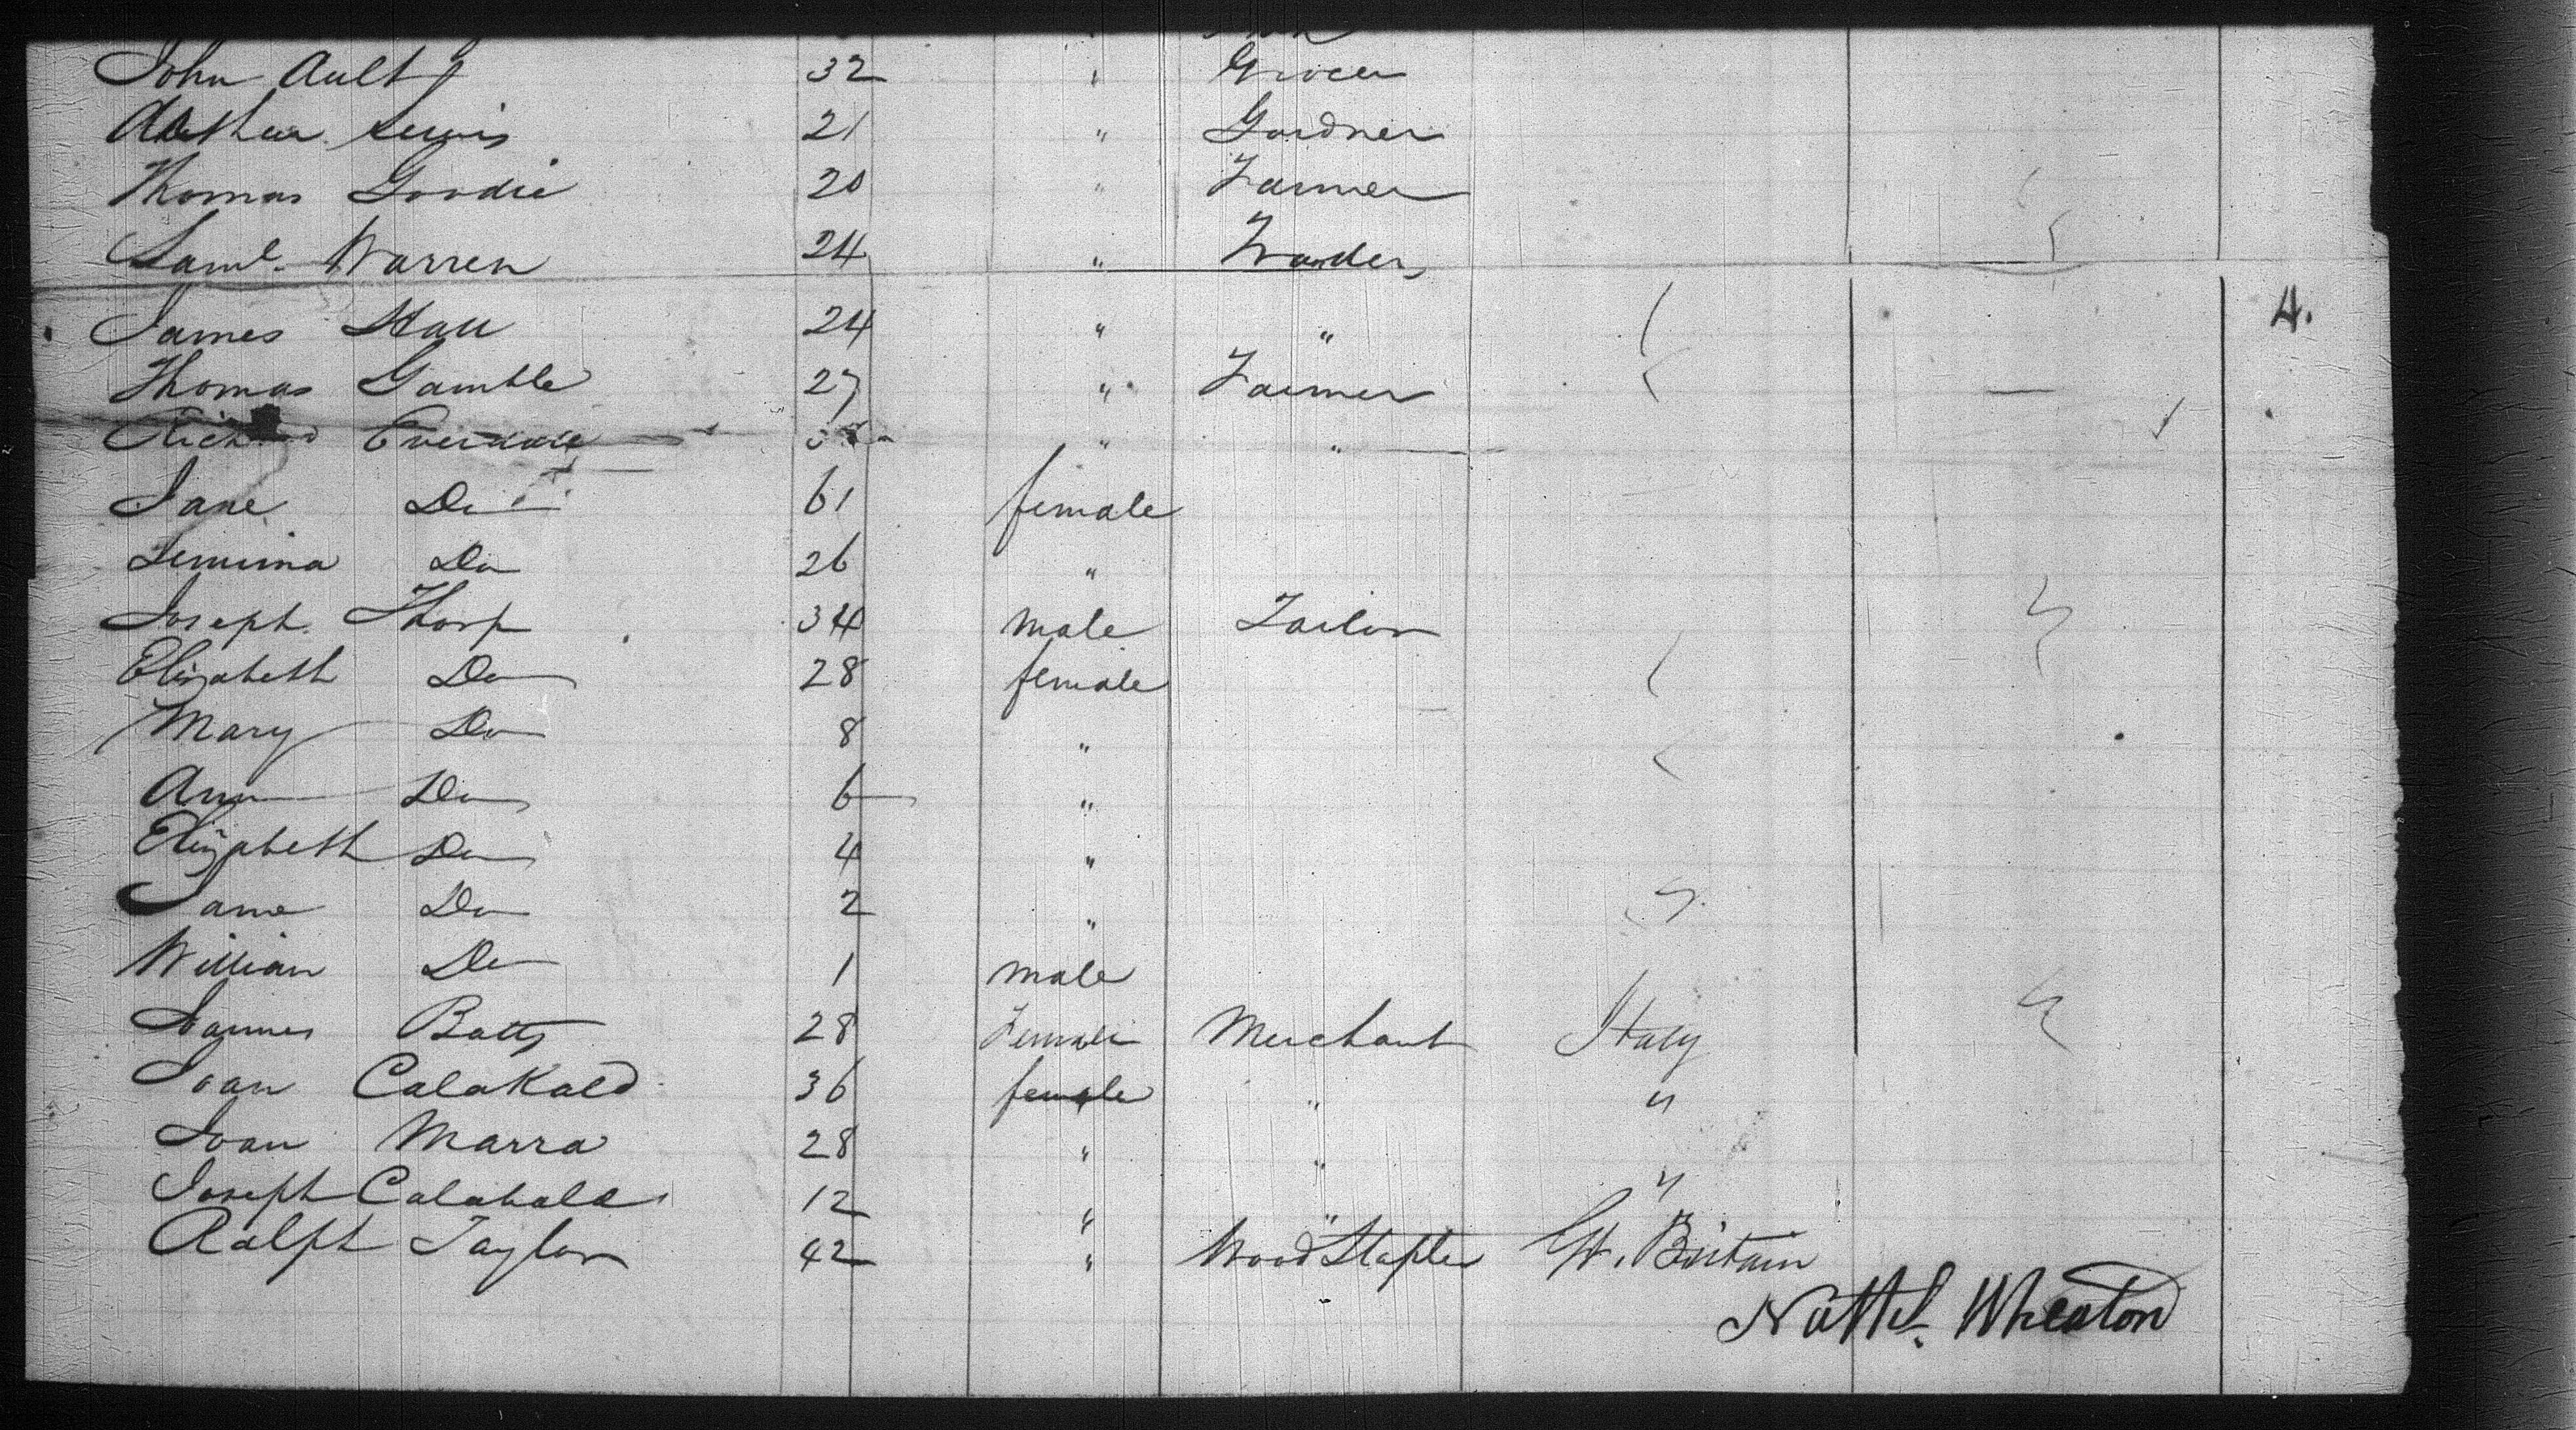 John Ault 32 " Grocer
Arthur Lewis 21 " Gardner
Thomas Goodie 20 " Farmer
Saml. Warren 24 " Trader
James Hall 24 " "
Thomas Gamble 27 " Farmer
Richard " "
Jane Do 61 female
Jemima Do 26 "
Joseph Thorp 34 male Tailor
Elizabeth Do 28 female
Mary Do 8 "
Ann Do 6 "
Elizabeth Do 4 "
Jane Do 2 "
William Do 1 male
Batts 28 Female Merchant Italy
Joan Calakald 36 female " "
Joan Marra 28 " "
Joseph Calakala 12 " " "
Ralph Taylor 42 " Wood Stapler Gt. Britain
4.
Nathl. Wheaton